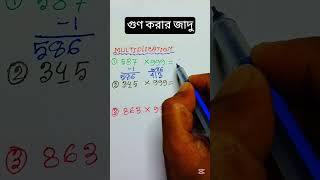 গুণ করার জাদু
587
-1
586
② 345
③ 863
MULTIPLICATION
① 587 × 999 =
-1
586
② 345 × 999 =
③ 863 × 99